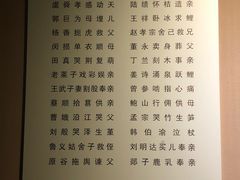 虞舜孝感动天 陆绩怀桔遗亲
郭巨为母埋儿 王祥卧冰求鲤
杨香扼虎救父 赵孝宗舍己救兄
闵损单衣顺母 董永卖身葬父
田真哭荆复萌 丁兰刻木事亲
老莱子戏彩娱亲 姜诗涌泉跃鲤
王武子妻割股奉亲 曾参啮指心痛
蔡顺拾葚供亲 鲍山行佣供母
曹娥沿江哭父 孟宗哭竹生笋
刘殷哭泽生堇 韩伯俞泣杖
鲁义姑舍子救侄 刘明达卖儿奉亲
原谷拖舆谏父 郯子鹿乳奉亲